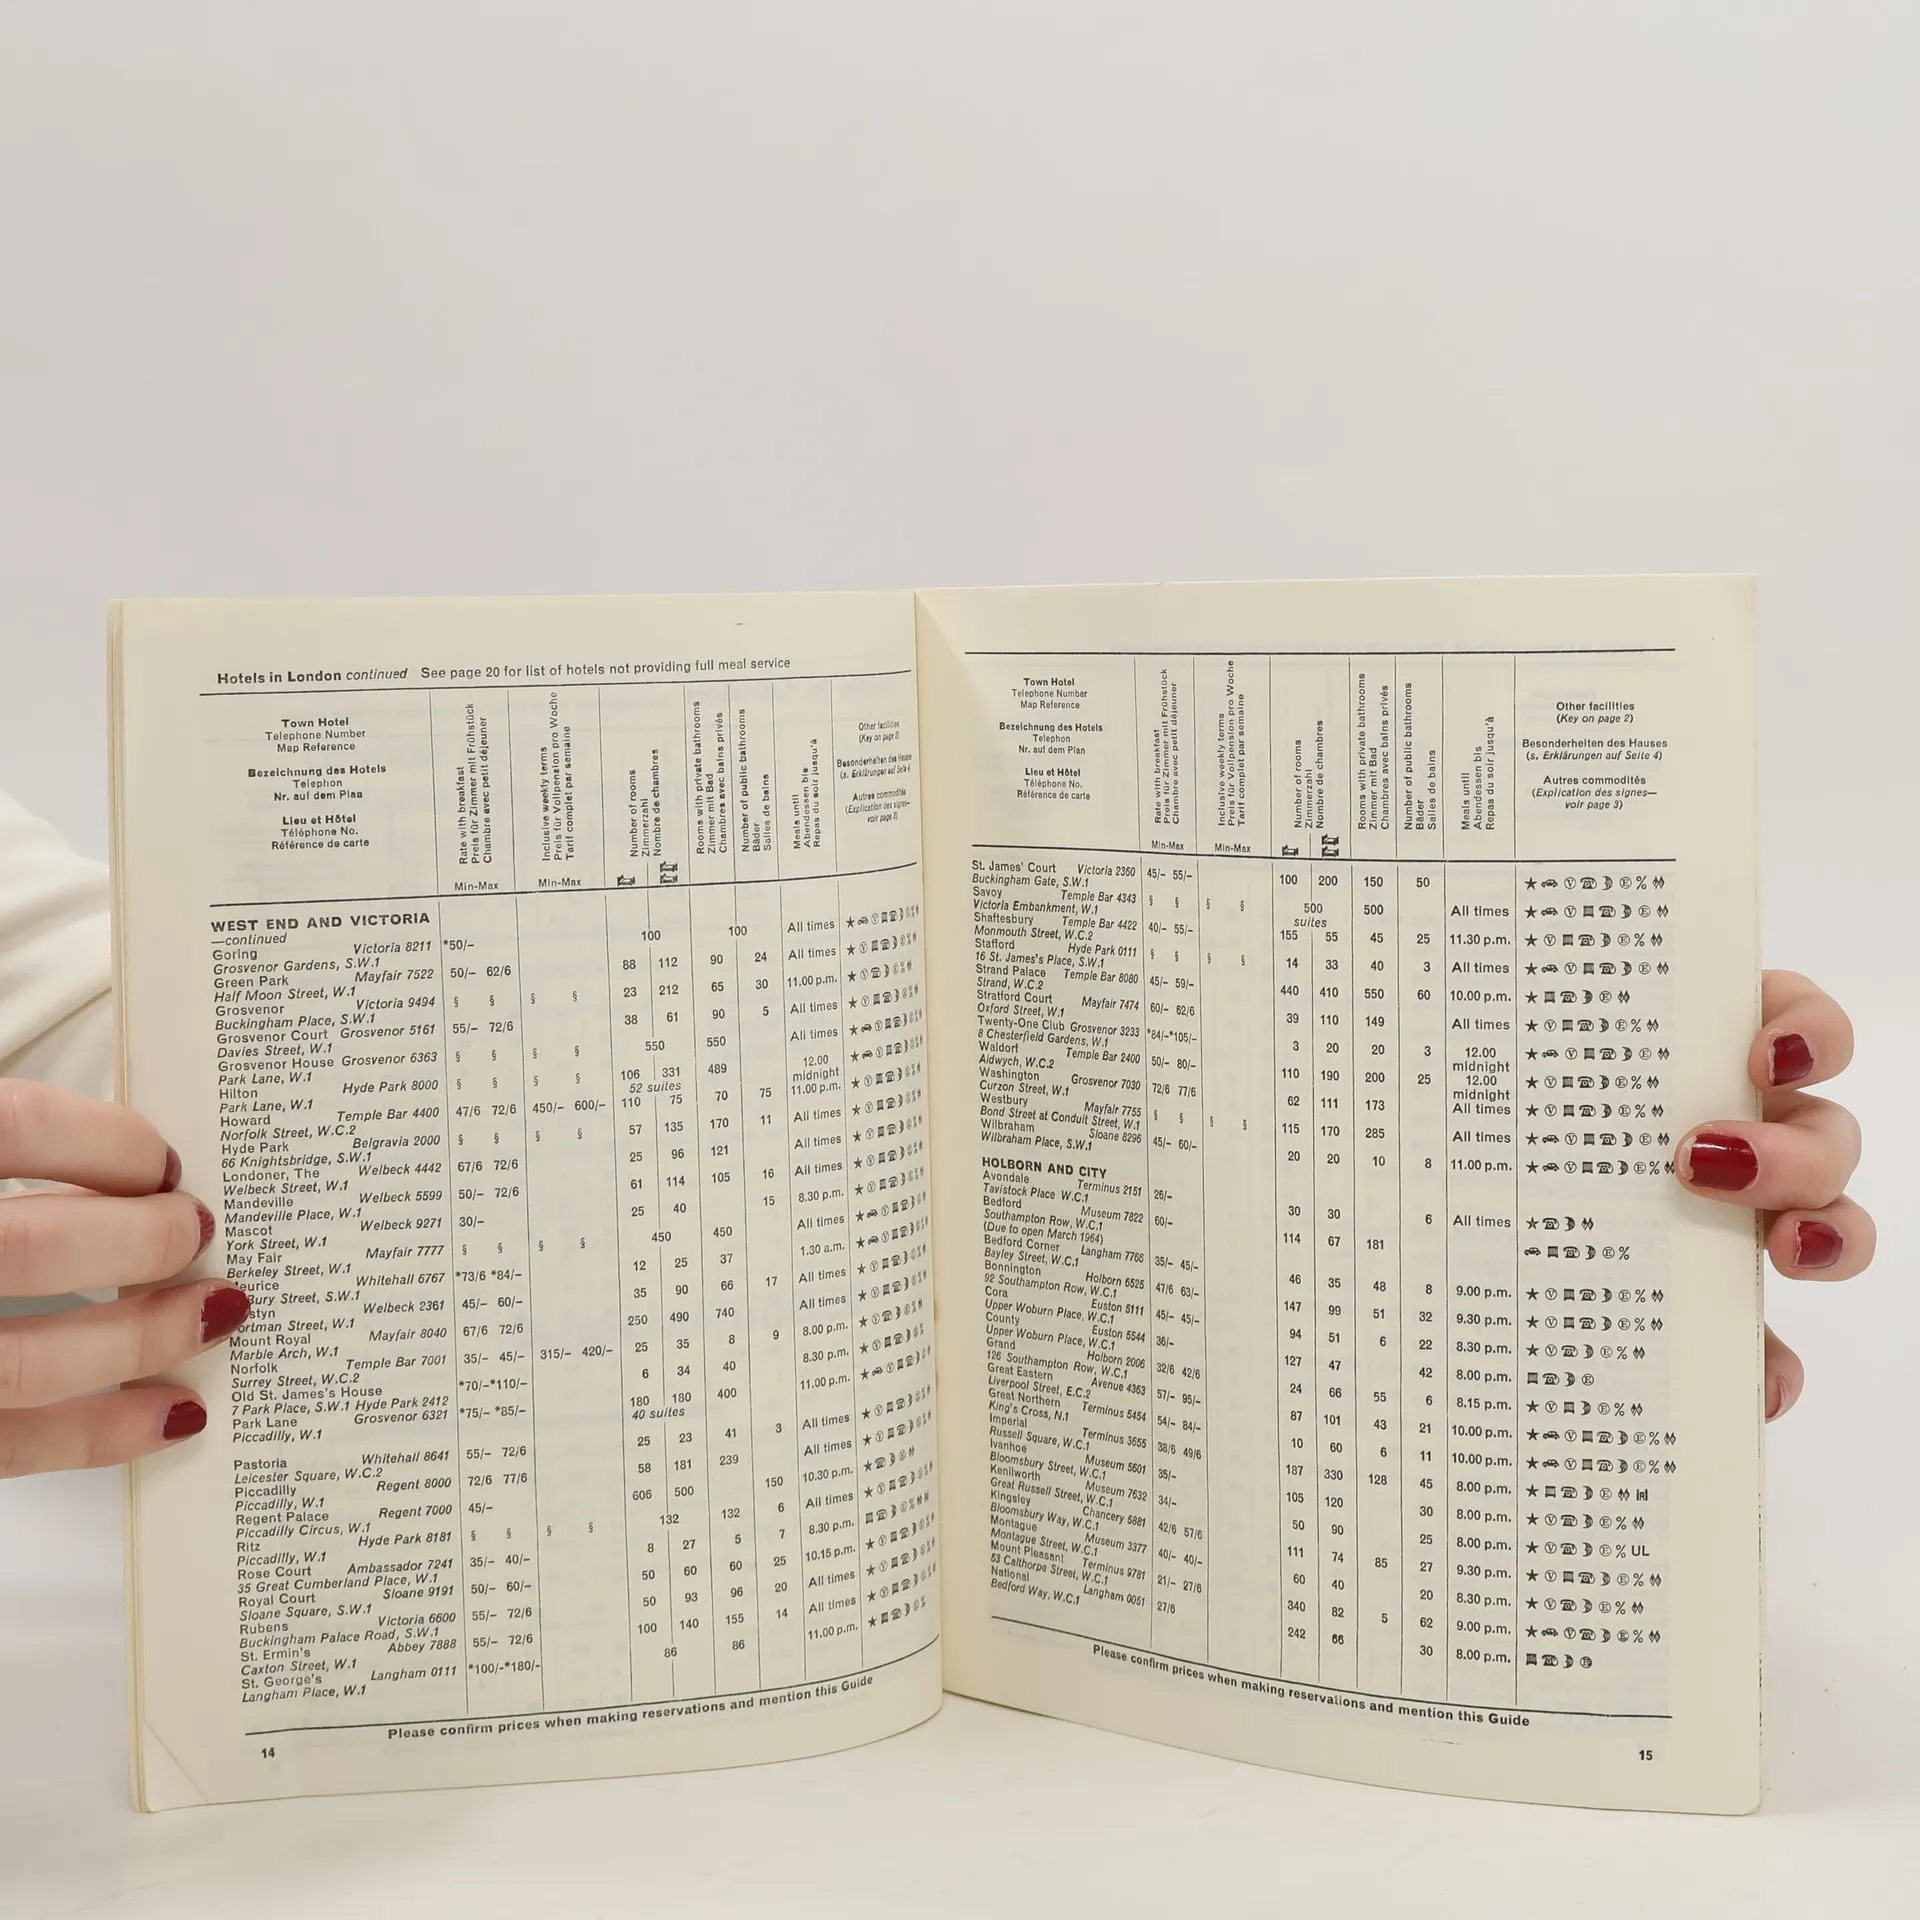 Hotels in London continued See page 20 for list of hotels not providing full meal service
Town Hotel
Telephone Number
Map Reference
Bezeichnung des Hotels
Telephon
Nr. auf dem Plan
Lieu et Hôtel
Téléphone No.
Référence de carte
Rate with breakfast
Preis für Zimmer mit Frühstück
Chambre avec petit déjeuner
Min-Max
Inclusive weekly terms
Preis für Vollpension pro Woche
Tarif complet par semaine
Min-Max
Number of rooms
Zimmerzahl
Nombre de chambres
Rooms with private bathrooms
Zimmer mit Bad
Chambres avec bains privés
Number of public bathrooms
Bäder
Salles de bains
Meals until
Abendessen bis
Repas du soir jusqu'à
Other facilities
(Key on page 2)
Besonderheiten des Hauses
(s. Erklärungen auf Seite 4
Autres commodités
(Explication des signes—
voir page 3)
WEST END AND VICTORIA
—continued
Goring Victoria 8211 *50/– 100 100 All times
Grosvenor Gardens, S.W.1
Green Park Mayfair 7522 50/– 62/6 88 112 90 24 All times
Half Moon Street, W.1
Grosvenor Victoria 9494 § § § § 23 212 65 30 11.00 p.m.
Buckingham Place, S.W.1
Grosvenor Court Grosvenor 5161 55/– 72/6 38 61 90 5 All times
Davies Street, W.1
Grosvenor House Grosvenor 6363 § § § § 550 550 All times
Park Lane, W.1
Hilton Hyde Park 8000 § § § § 106 331 489 12.00
Park Lane, W.1 52 suites midnight
Howard Temple Bar 4400 47/6 72/6 450/– 600/– 110 75 70 75 11.00 p.m.
Norfolk Street, W.C.2
Hyde Park Belgravia 2000 § § § § 57 135 170 11 All times
66 Knightsbridge, S.W.1
Londoner, The Welbeck 4442 67/6 72/6 25 96 121 All times
Welbeck Street, W.1
Mandeville Welbeck 5599 50/– 72/6 61 114 105 16 All times
Mandeville Place, W.1
Mascot Welbeck 9271 30/– 25 40 15 8.30 p.m.
York Street, W.1
May Fair Mayfair 7777 § § § § 450 450 All times
Berkeley Street, W.1
eurice Whitehall 6767 *73/6 *84/– 12 25 37 1.30 a.m.
Bury Street, S.W.1
styn Welbeck 2361 45/– 60/– 35 90 66 17 All times
ortman Street, W.1
Mount Royal Mayfair 8040 67/6 72/6 250 490 740 All times
Marble Arch, W.1
Norfolk Temple Bar 7001 35/– 45/– 315/– 420/– 25 35 8 9 8.00 p.m.
Surrey Street, W.C.2
Old St. James's House *70/–*110/– 6 34 40 8.30 p.m.
7 Park Place, S.W.1 Hyde Park 2412
Park Lane Grosvenor 6321 *75/– *85/– 180 180 400 11.00 p.m.
Piccadilly, W.1 40 suites
Pastoria Whitehall 8641 55/– 72/6 25 23 41 3 All times
Leicester Square, W.C.2
Piccadilly Regent 8000 72/6 77/6 58 181 239 All times
Piccadilly, W.1
Regent Palace Regent 7000 45/– 606 500 150 10.30 p.m.
Piccadilly Circus, W.1
Ritz Hyde Park 8181 § § § § 132 132 6 All times
Piccadilly, W.1
Rose Court Ambassador 7241 35/– 40/– 8 27 5 7 8.30 p.m.
35 Great Cumberland Place, W.1
Royal Court Sloane 9191 50/– 60/– 50 60 60 25 10.15 p.m.
Sloane Square, S.W.1
Rubens Victoria 6600 55/– 72/6 50 93 96 20 All times
Buckingham Palace Road, S.W.1
St. Ermin's Abbey 7888 55/– 72/6 100 140 155 14 All times
Caxton Street, W.1
St. George's Langham 0111 *100/–*180/– 86 86 11.00 p.m.
Langham Place, W.1
Please confirm prices when making reservations and mention this Guide
14
Town Hotel
Telephone Number
Map Reference
Bezeichnung des Hotels
Telephon
Nr. auf dem Plan
Lieu et Hôtel
Téléphone No.
Référence de carte
Rate with breakfast
Preis für Zimmer mit Frühstück
Chambre avec petit déjeuner
Min-Max
Inclusive weekly terms
Preis für Vollpension pro Woche
Tarif complet par semaine
Min-Max
Number of rooms
Zimmerzahl
Nombre de chambres
Rooms with private bathrooms
Zimmer mit Bad
Chambres avec bains privés
Number of public bathrooms
Bäder
Salles de bains
Meals until
Abendessen bis
Repas du soir jusqu'à
Other facilities
(Key on page 2)
Besonderheiten des Hauses
(s. Erklärungen auf Seite 4)
Autres commodités
(Explication des signes—
voir page 3)
St. James' Court Victoria 2360 45/– 55/– 100 200 150 50
Buckingham Gate, S.W.1
Savoy Temple Bar 4343 § § § § 500 500 All times
Victoria Embankment, W.1 suites
Shaftesbury Temple Bar 4422 40/– 55/– 155 55 45 25 11.30 p.m.
Monmouth Street, W.C.2
Stafford Hyde Park 0111 § § § § 14 33 40 3 All times
16 St. James's Place, S.W.1
Strand Palace Temple Bar 8080 45/– 59/– 440 410 550 60 10.00 p.m.
Strand, W.C.2
Stratford Court Mayfair 7474 60/– 62/6 39 110 149 All times
Oxford Street, W.1
Twenty-One Club Grosvenor 3233 *84/–*105/– 3 20 20 3 12.00
8 Chesterfield Gardens, W.1 midnight
Waldorf Temple Bar 2400 50/– 80/– 110 190 200 25 12.00
Aldwych, W.C.2 midnight
Washington Grosvenor 7030 72/6 77/6 62 111 173 All times
Curzon Street, W.1
Westbury Mayfair 7755 § § § § 115 170 285 All times
Bond Street at Conduit Street, W.1
Wilbraham Sloane 8296 45/– 60/– 20 20 10 8 11.00 p.m.
Wilbraham Place, S.W.1
HOLBORN AND CITY
Avondale Terminus 2151 26/– 30 30 6 All times
Tavistock Place W.C.1
Bedford Museum 7822 60/– 114 67 181
Southampton Row, W.C.1
(Due to open March 1964)
Bedford Corner Langham 7766 35/– 45/– 46 35 48 8 9.00 p.m.
Bayley Street, W.C.1
Bonnington Holborn 6525 47/6 63/– 147 99 51 32 9.30 p.m.
92 Southampton Row, W.C.1
Cora Euston 5111 45/– 45/– 94 51 6 22 8.30 p.m.
Upper Woburn Place, W.C.1
County Euston 5544 36/– 127 47 42 8.00 p.m.
Upper Woburn Place, W.C.1
Grand Holborn 2006 32/6 42/6 24 66 55 6 8.15 p.m.
126 Southampton Row, W.C.1
Great Eastern Avenue 4363 57/– 95/– 87 101 43 21 10.00 p.m.
Liverpool Street, E.C.2
Great Northern Terminus 5454 54/– 84/– 10 60 6 11 10.00 p.m.
King's Cross, N.1
Imperial Terminus 3655 38/6 49/6 187 330 128 45 8.00 p.m.
Russell Square, W.C.1
Ivanhoe Museum 5601 35/– 105 120 30 8.00 p.m.
Bloomsbury Street, W.C.1
Kenilworth Museum 7632 34/– 50 90 25 8.00 p.m. UL
Great Russell Street, W.C.1
Kingsley Chancery 5881 42/6 57/6 111 74 85 27 9.30 p.m.
Bloomsbury Way, W.C.1
Montague Museum 3377 40/– 40/– 60 40 20 8.30 p.m.
Montague Street, W.C.1
Mount Pleasant Terminus 9781 21/– 27/6 340 82 5 62 9.00 p.m.
53 Calthorpe Street, W.C.1
National Langham 0051 27/6 242 66 30 8.00 p.m.
Bedford Way, W.C.1
Please confirm prices when making reservations and mention this Guide
15